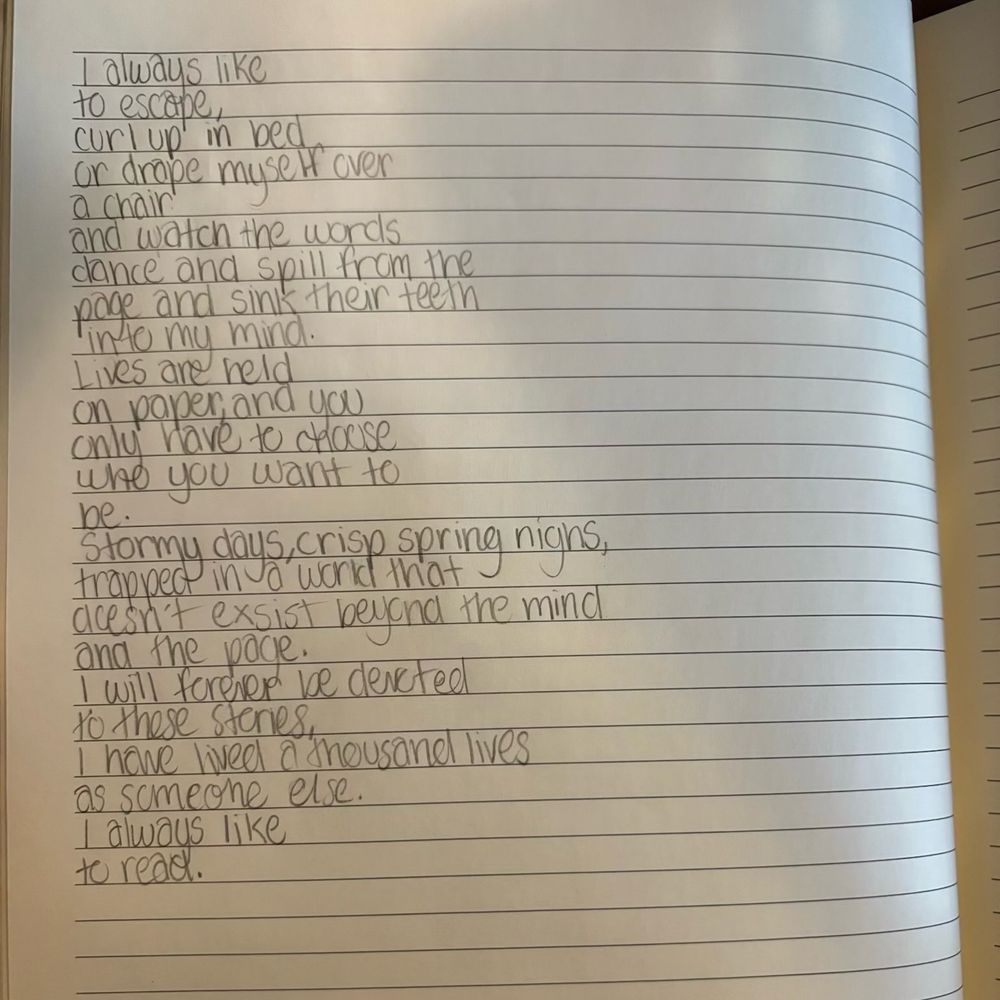 I always like
to escape,
curl up in bed
or drape myself over
a chair
and watch the words
dance and spill from the
page and sink their teeth
into my mind.
Lives are held
on paper, and you
only have to choose
who you want to
be.
Stormy days, crisp spring nighs,
trapped in a world that
doesn't exsist beyond the mind
and the page.
I will forever be devoted
to these stories,
I have lived a thousand lives
as someone else.
I always like
to read.